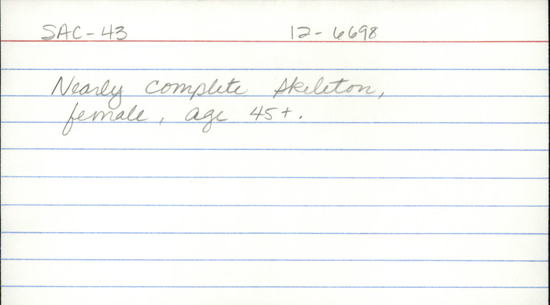 SAC-43 12-6698
Nearly complete skeleton,
female, age 45+.